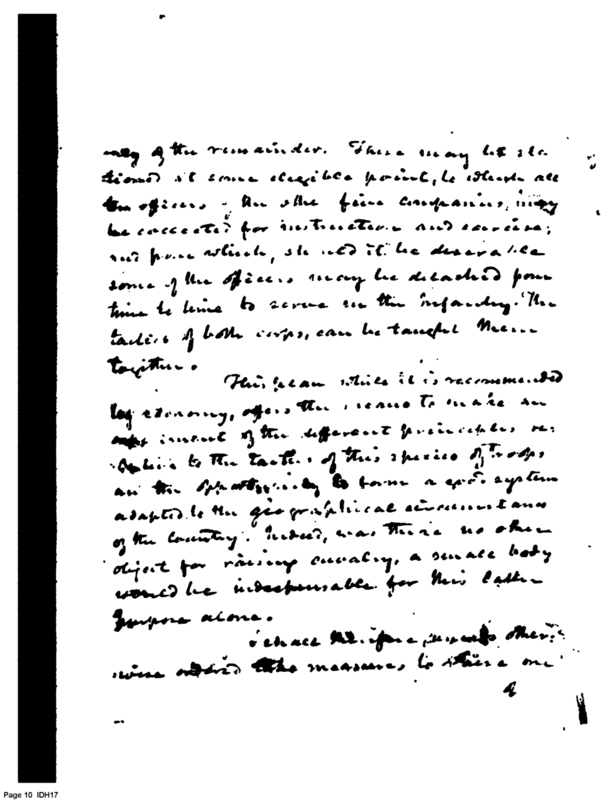 of the remainder. These may be sta
tioned at some elegible point, to which all
the officers of the other five companies, may
be collected for instruction and exercise;
and from which, should it be deserable
some of the officers may be detached from
time to time to serve in the infantry. The
tactics of both corps, can be taught them
together.
This plan while it is recommended
by economy, offers the means to make an
experiment of the different principles re
lative to the tactics of this species of troops
an the opportunity to form a good system
adapted to the geographical circumstances
of the Country. Indeed, was there no other
object for raising cavalry, a small body
would be indespensable for this latter
purpose alone.
I shall therefore, unless other
wise ordered take measures to raise one
Page 10 IDH17